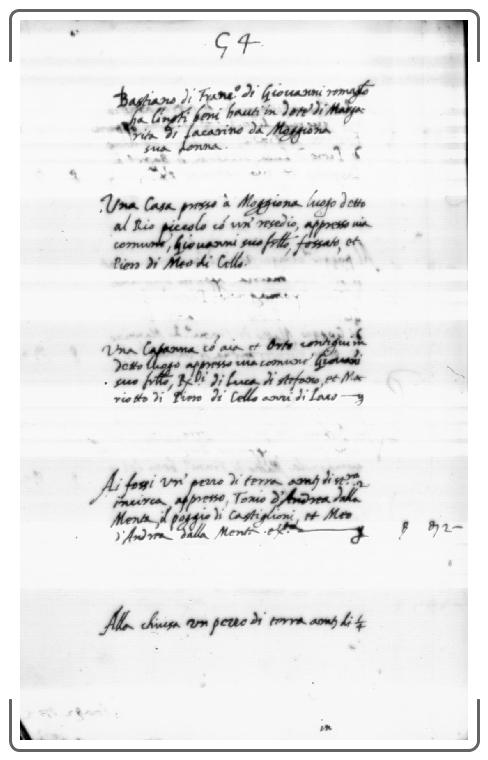 54
Bastiano di Fran.o di Giovanni romagto
ha l'inosti beni hauti in dote di Marga:
rita di Lacarino da Moggiona
sua donna.
Una Casa presso à Moggiona luogo detto
al Rio piccolo có un' resedio, appresso via
comune, Giovanni suo frllo, fossato, et
Piero di Meo di Cello.
Una Capanna có aia et Orto contigui in
detto luogo appresso via comune Giovani
suo frllo, Rxdi di Luca di Stefano, et Ma
riotto di Piero di Cello anni di Laso
Ai fossi un' pezzo di terra
incirca appresso, Tonio d'Andrea dalla
Menta, il poggio di Castiglioni, et Meo
d'Andrea dalla Menta
Alla chiusa un pezzo di terra di 1/4
in